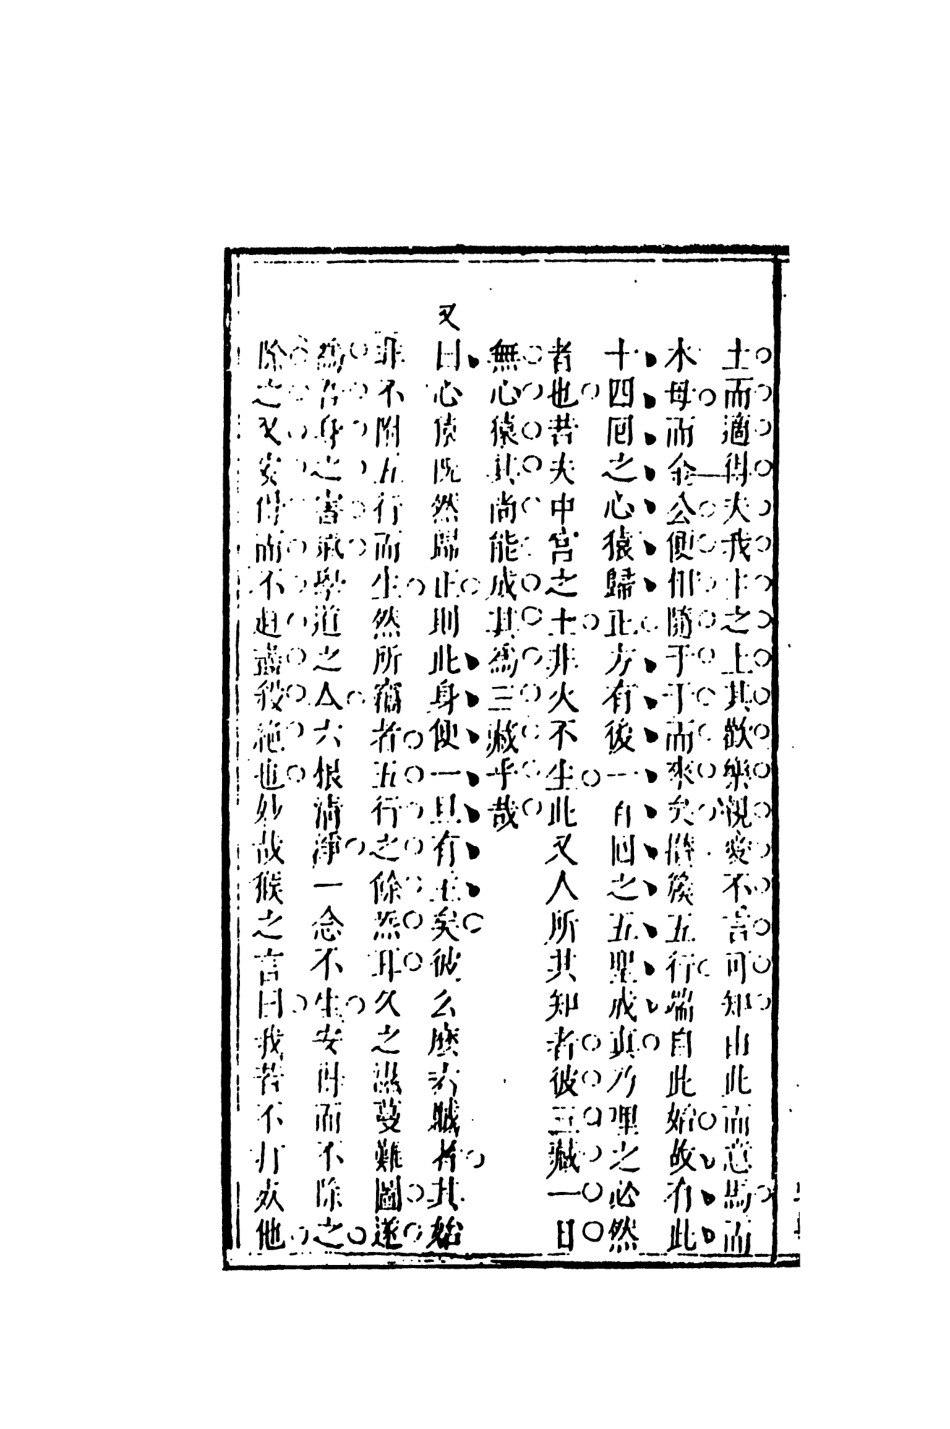 土而適得夫我生之土其歡樂親愛不言可知由此而意馬而
木母而金公便相隨于于而來矣攢簇五行端自此始故有此
十四回之心猿歸正方有後一百回之五聖成真乃理之必然
者也若夫中宮之土非火不生此又人所共知者彼三藏一日
無心猿其尚能成其為三藏乎哉
又曰心猿既然歸正則此身便一具有主矣彼么麼六賊者其始
非不附五行而生然所竊者五行之餘炁耳久之滋蔓難圖遂
為吾身之害氣學道之人六根清淨一念不生安得而不除之
除之又安得而不趕盡殺絕也妙哉猴之言曰我若不打死他